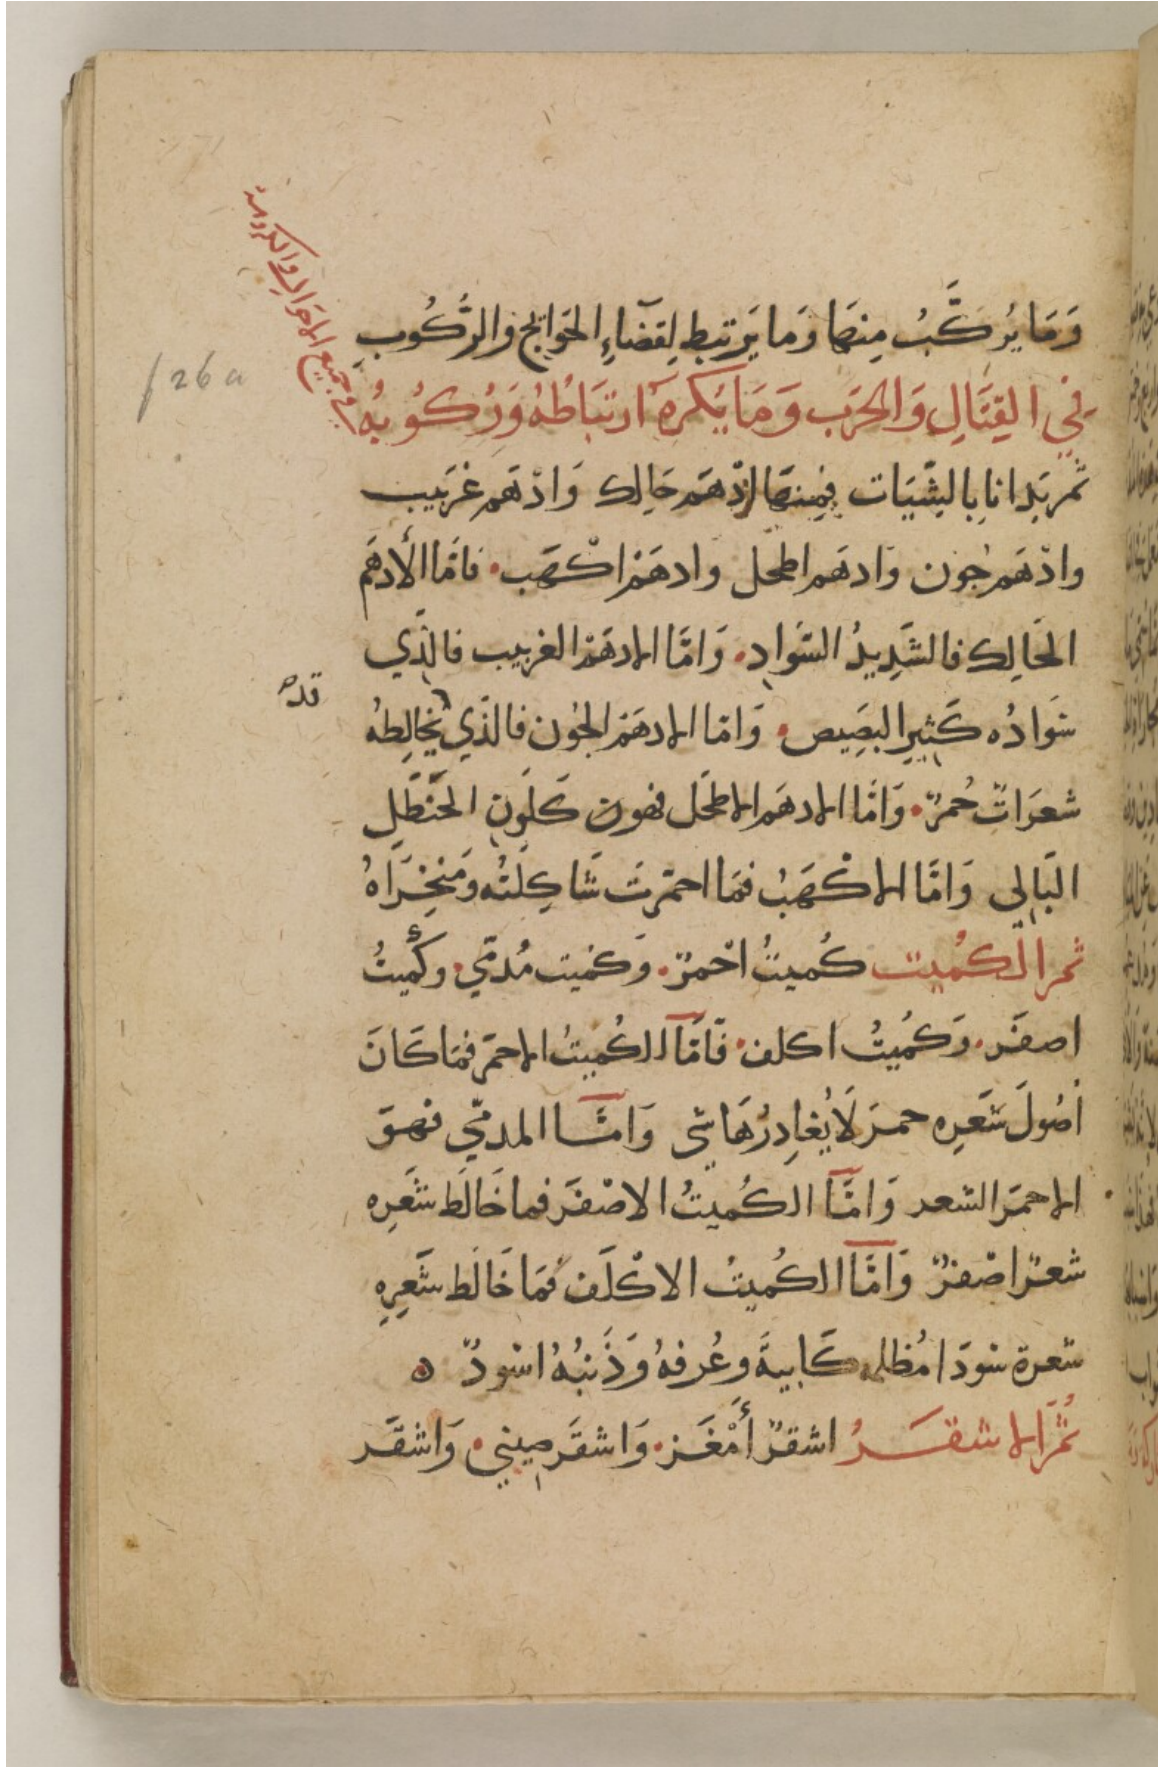 وَمَا يُركَّبُ مِنهَا وَمَا يَرتبط لِقضَآءِ الحَوايج وَالرُّكُوبِ
فِي القِتَالِ وَالحَرَب وَمَا يُكرَهَ ارتبَاطُهُ وَرُكُوبُهُ
في جميع الاحوال والكر
f 26 a
ثم بَدانا بالشّيَات فمِنهَا ادْهَم حَالِك وَادْهَم غربيب
وادْهَم جُون وَادهَم اطحل وادهَمْ اكْهَب. فامّا الأدهَم
الحَالِك فالشّدِيدُ السّوادِ. وَامَّا الادهَمْ الغربيب فالذّي
سَوادُه كَثيرِ البصَيِص. وَامّا الادهَمْ الجُون فالذّي يُخالِطهُ
شعرَاتٌ حُمرٌ. وَامَّا الادهَم الاطحَل فهو ن كَلَونِ الحنَظَلِ
البَالِي وَامَّا الاكْهَبُ فمَا احمّرتَ شَاكِلَتُه وَمَنخِرَاهُ
ثم الكُميت كُميتُ احْمرٌ. وَكميت مُدمّي. وكُميتُ
اصفَر. وَكُميتُ اكلف. فَامَّا الكُميتُ الاحمَر فمَا كَانَ
اُصُولَ شَعرِه حمرَ لَا يُغادِرُهَا شي وَامَّا المدمّي فهوَ
الاحمَر الشعر وَامَّا الكُميتُ الاصْفَر فما خَالَط شَعرِه
شعرٌ اصْفرٌ وَامَّا الكُميتُ الاكْلَف فمَا خَالَط شَعرِهِ
شعرة سَودَا مُظلمه كَابيةَ وعُرفهُ وَذَنبُهُ اسودٌ ه
ثُمَّ الاشقَرُ اشقرٌ أَمْغَر. وَاشقَر صِيني. وَاشقَر